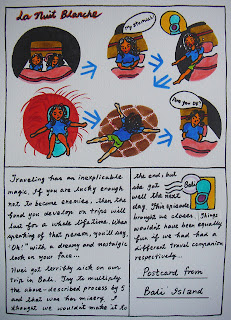 La Nuit Blanche
my stomach!
Are you OK?
Traveling has an inexplicable
magic. If you are lucky enough
not to become enemies, then the
bond you develop on trips will
last for a whole lifetime. When
speaking of that person, you'll say,
"Oh!" with a dreamy and nostalgic
look on your face...
got terribly sick on our
trip in Bali. Try to multiply
the above-described process by 5
and that was her misery. I
thought we wouldn't make it to
the end, but
she got
well the next
day. This episode
brought us closer. Things
wouldn't have been equally
fun if we had had a
different travel companion
respectively...
Bali
Postcard from
Bali Island